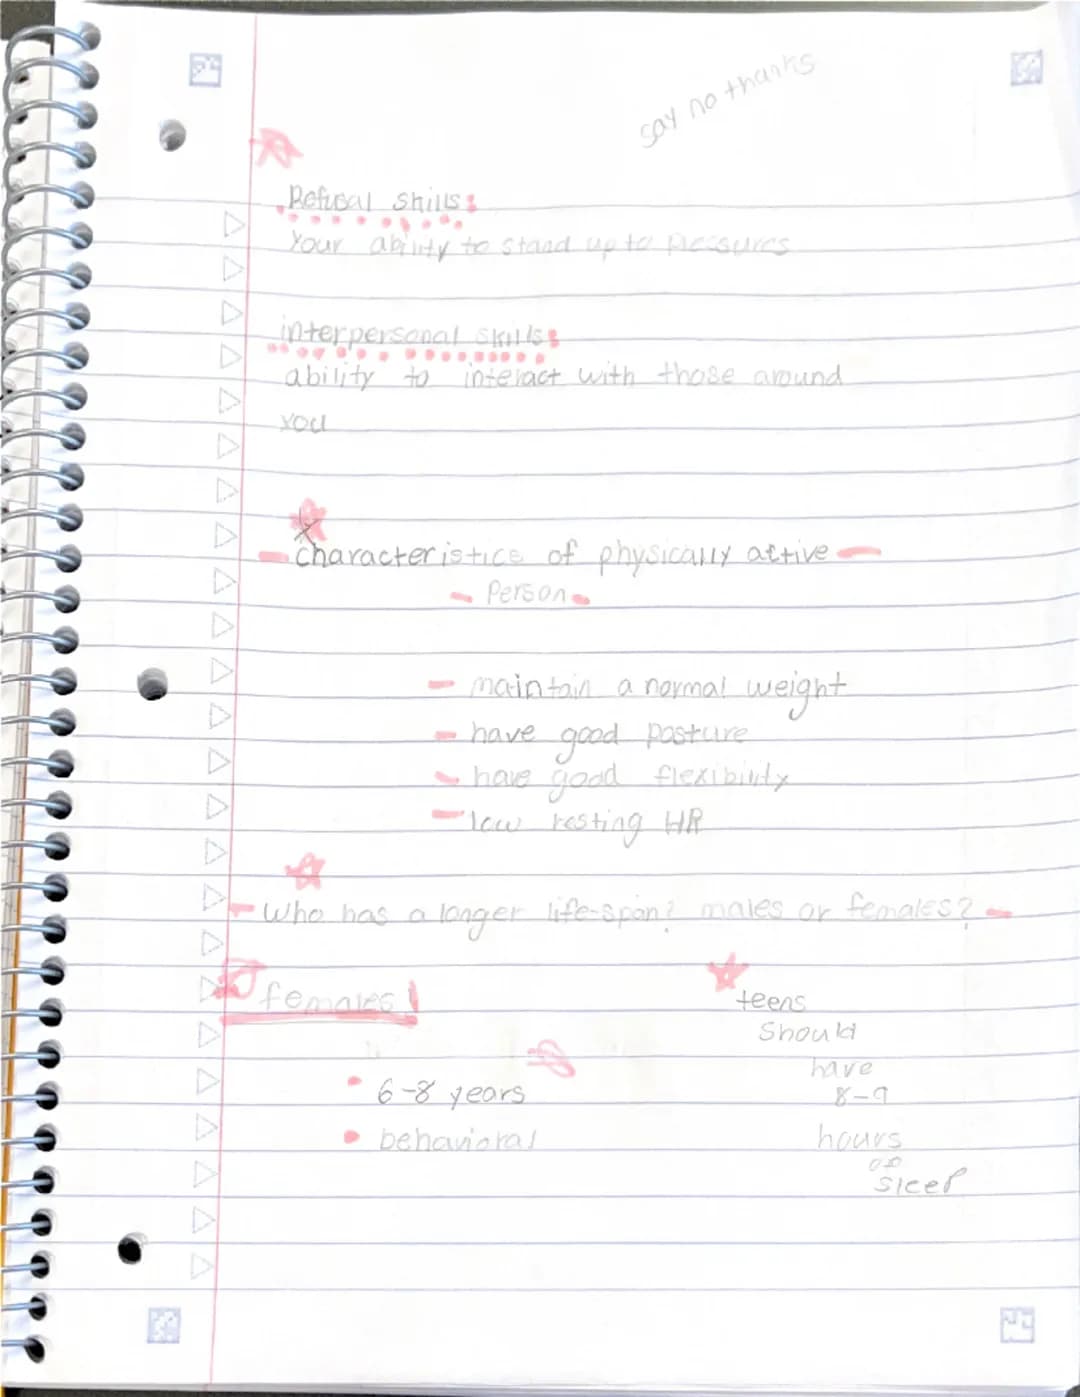 say no thanks
Refusal skills:
Your ability to stand up to pressures
interpersonal skills:
ability to interact with those around
you
characteristics of physically active
Person
- maintain a normal weight
- have good posture
- have good flexibility
- low resting HR
- Who has a longer life-span? males or females? -
females!
• 6-8 years
• behavioral
teens
Should
have
8-9
hours
of
sleep